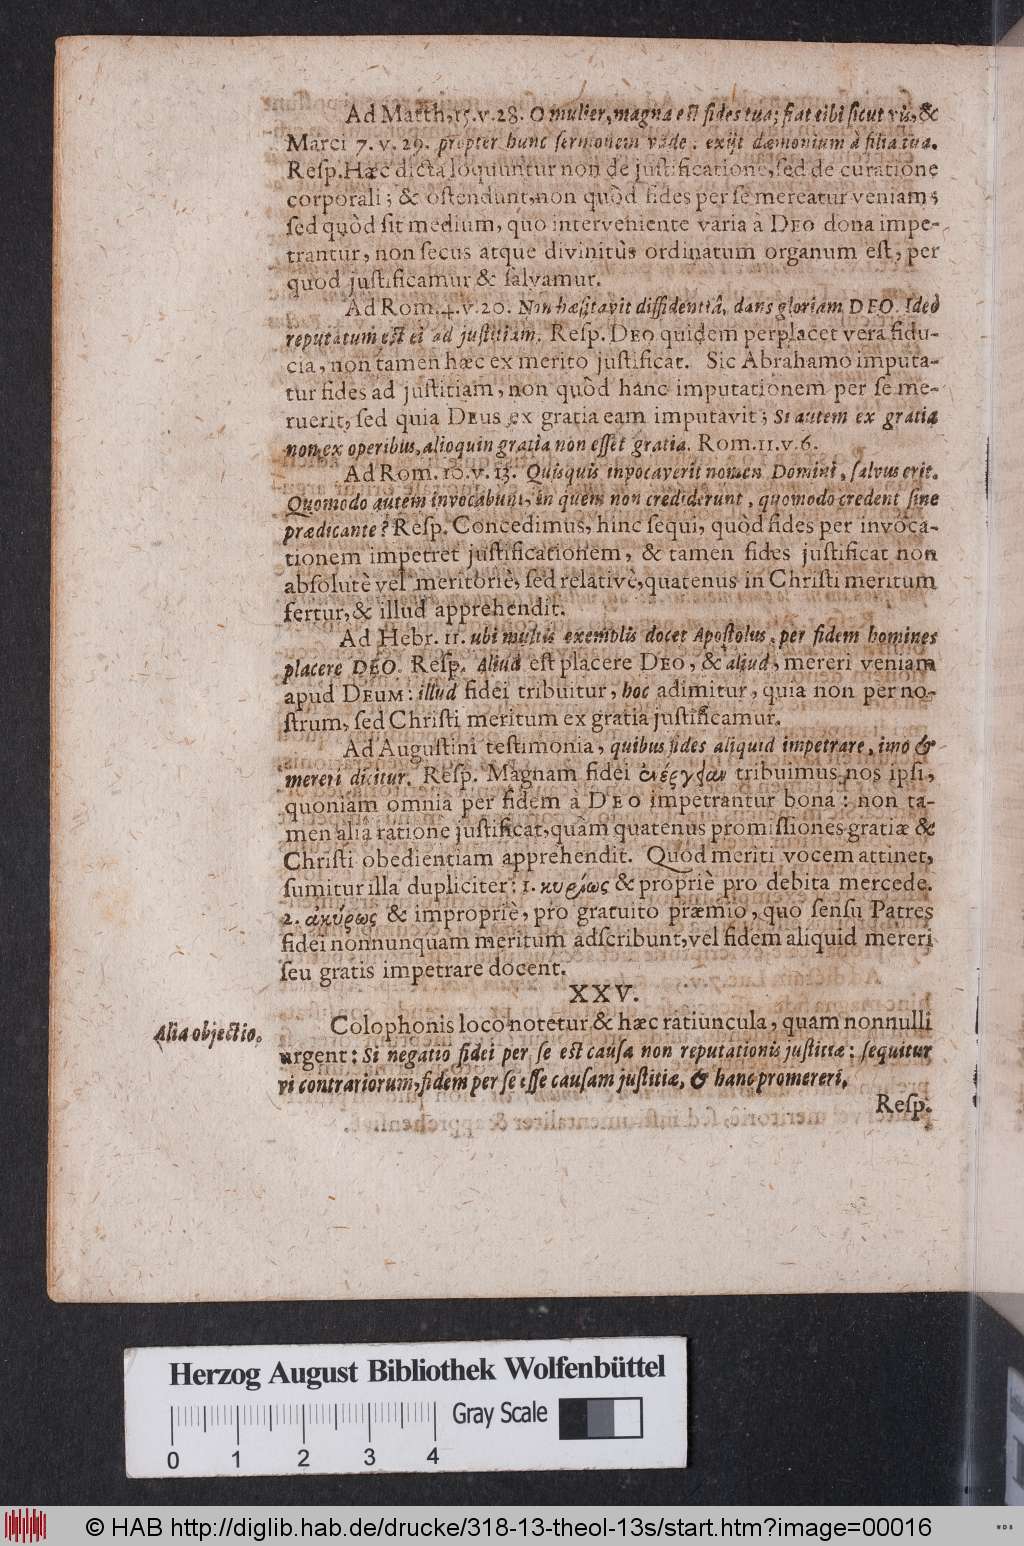 Ad Matth. 15. v. 28. O mulier, magna est fides tua; fiat tibi sicut vis, &
Marci 7. v. 29. propter hunc sermonem vade, exijt dæmonium à filia tua.
Resp. Hæc dicta loquuntur non de justificatione, sed de curatione
corporali; & ostendunt, non quòd fides per se mereatur veniam;
sed quòd sit medium, quo interveniente varia à DEO dona impe-
trantur, non secus atque divinitùs ordinatum organum est, per
quod justificamur & salvamur.
Ad Rom. 4. v. 20. Non hæsitavit diffidentiâ, dans gloriam DEO. Ideò
reputatum est ei ad justitiam. Resp. DEO quidem perplacet vera fidu-
cia, non tamen hæc ex merito justificat. Sic Abrahamo imputa-
tur fides ad justitiam, non quòd hanc imputationem per se me-
ruerit, sed quia DEUS ex gratia eam imputavit; Si autem ex gratia
non ex operibus, alioquin gratia non esset gratia. Rom. 11. v. 6.
Ad Rom. 10. v. 13. Quisquis invocaverit nomen Domini, salvus erit.
Quomodo autem invocabunt, in quem non crediderunt, quomodo credent sine
prædicante? Resp. Concedimus, hinc sequi, quòd fides per invoca-
tionem impetret justificationem, & tamen fides justificat non
absolutè vel meritoriè, sed relativè, quatenus in Christi meritum
fertur, & illud apprehendit.
Ad Hebr. 11. ubi multis exemplis docet Apostolus, per fidem homines
placere DEO. Resp. Aliud est placere DEO, & aliud, mereri veniam
apud DEUM: illud fidei tribuitur, hoc adimitur, quia non per no-
strum, sed Christi meritum ex gratia justificamur.
Ad Augustini testimonia, quibus fides aliquid impetrare, imo &
mereri dicitur. Resp. Magnam fidei ἐνέργειαν tribuimus nos ipsi,
quoniam omnia per fidem à DEO impetrantur bona: non ta-
men alia ratione justificat, quàm quatenus promissiones gratiæ &
Christi obedientiam apprehendit. Quod meriti vocem attinet,
sumitur illa dupliciter: 1. κυρίως & propriè pro debita mercede.
2. ἀκύρως & impropriè, pro gratuito præmio, quo sensu Patres
fidei nonnunquam meritum adscribunt, vel fidem aliquid mereri
seu gratis impetrare docent.
XXV.
Alia objectio.
Colophonis loco notetur & hæc ratiuncula, quam nonnulli
urgent: Si negatio fidei per se est causa non reputationis justitiæ: sequitur
vi contrariorum, fidem per se esse causam justitiæ, & hanc promereri.
Resp.
Herzog August Bibliothek Wolfenbüttel
Gray Scale
0 1 2 3 4
© HAB http://diglib.hab.de/drucke/318-13-theol-13s/start.htm?image=00016